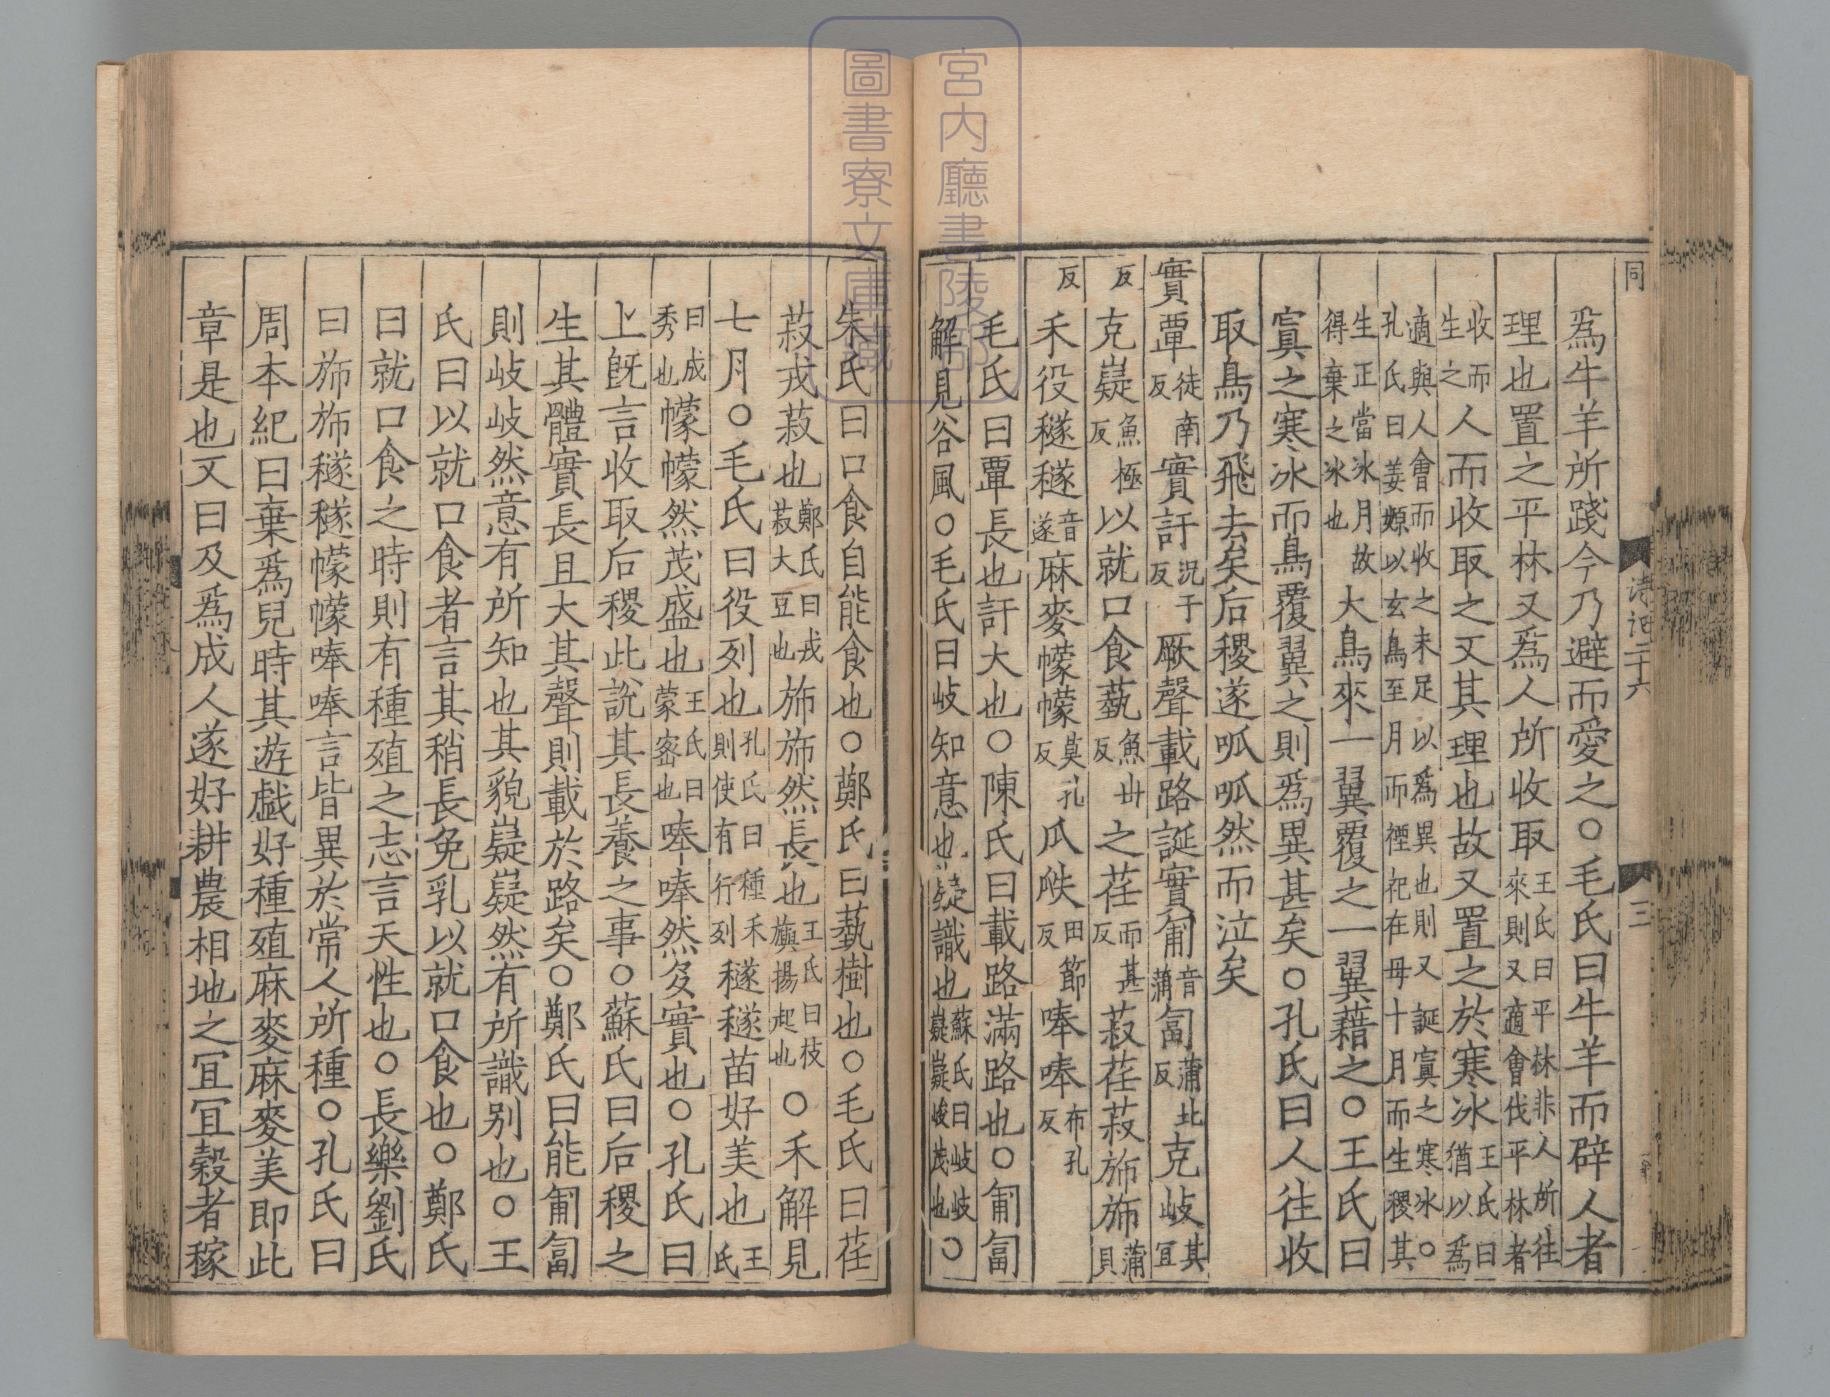 同
詩記二十六
三
為牛羊所踐今乃避而愛之○毛氏曰牛羊而辟人者
理也置之平林又為人所收取王氏曰平林非人所往來則又適會伐平林者
收而生之人而收取之又其理也故又置之於寒冰王氏曰猶以為
適與人會而收之未足以為異也則又誕寘之寒冰○孔氏曰姜嫄以玄鳥至月而禋祀在母十月而生稷其
生正當冰月故得棄之冰也大鳥來一翼覆之一翼藉之○王氏曰
寘之寒冰而鳥覆翼之則為異甚矣○孔氏曰人往收
取鳥乃飛去矣后稷遂呱呱然而泣矣
實覃徒南反實訏況于反厥聲載路誕實匍音蒲匐蒲北反克岐其宜
反克嶷魚極反以就口食蓺魚世反之荏而甚反菽荏菽斾斾蒲貝
反禾役穟穟音遂麻麥幪幪莫孔反瓜瓞田節反唪唪布孔反
毛氏曰覃長也訏大也○陳氏曰載路滿路也○匍匐
解見谷風○毛氏曰岐知意也嶷識也蘇氏曰岐岐嶷嶷峻茂也○
朱氏曰口食自能食也○鄭氏曰蓺樹也○毛氏曰荏
菽戎菽也鄭氏曰戎菽大豆也斾斾然長也王氏曰枝旟揚起也○禾解見
七月○毛氏曰役列也孔氏曰種禾則使有行列穟穟苗好美也王氏
曰成秀也幪幪然茂盛也王氏曰蒙密也唪唪然多實也○孔氏曰
上旣言收取后稷此說其長養之事○蘇氏曰后稷之
生其體實長且大其聲則載於路矣○鄭氏曰能匍匐
則岐岐然意有所知也其貌嶷嶷然有所識别也○王
氏曰以就口食者言其稍長免乳以就口食也○鄭氏
曰就口食之時則有種殖之志言天性也○長樂劉氏
曰斾斾穟穟幪幪唪唪言皆異於常人所種○孔氏曰
周本紀曰棄爲兒時其遊戲好種殖麻麥麻麥美即此
章是也又曰及爲成人遂好耕農相地之宜宜榖者稼
宮内廳書陵部
圖書寮文庫藏